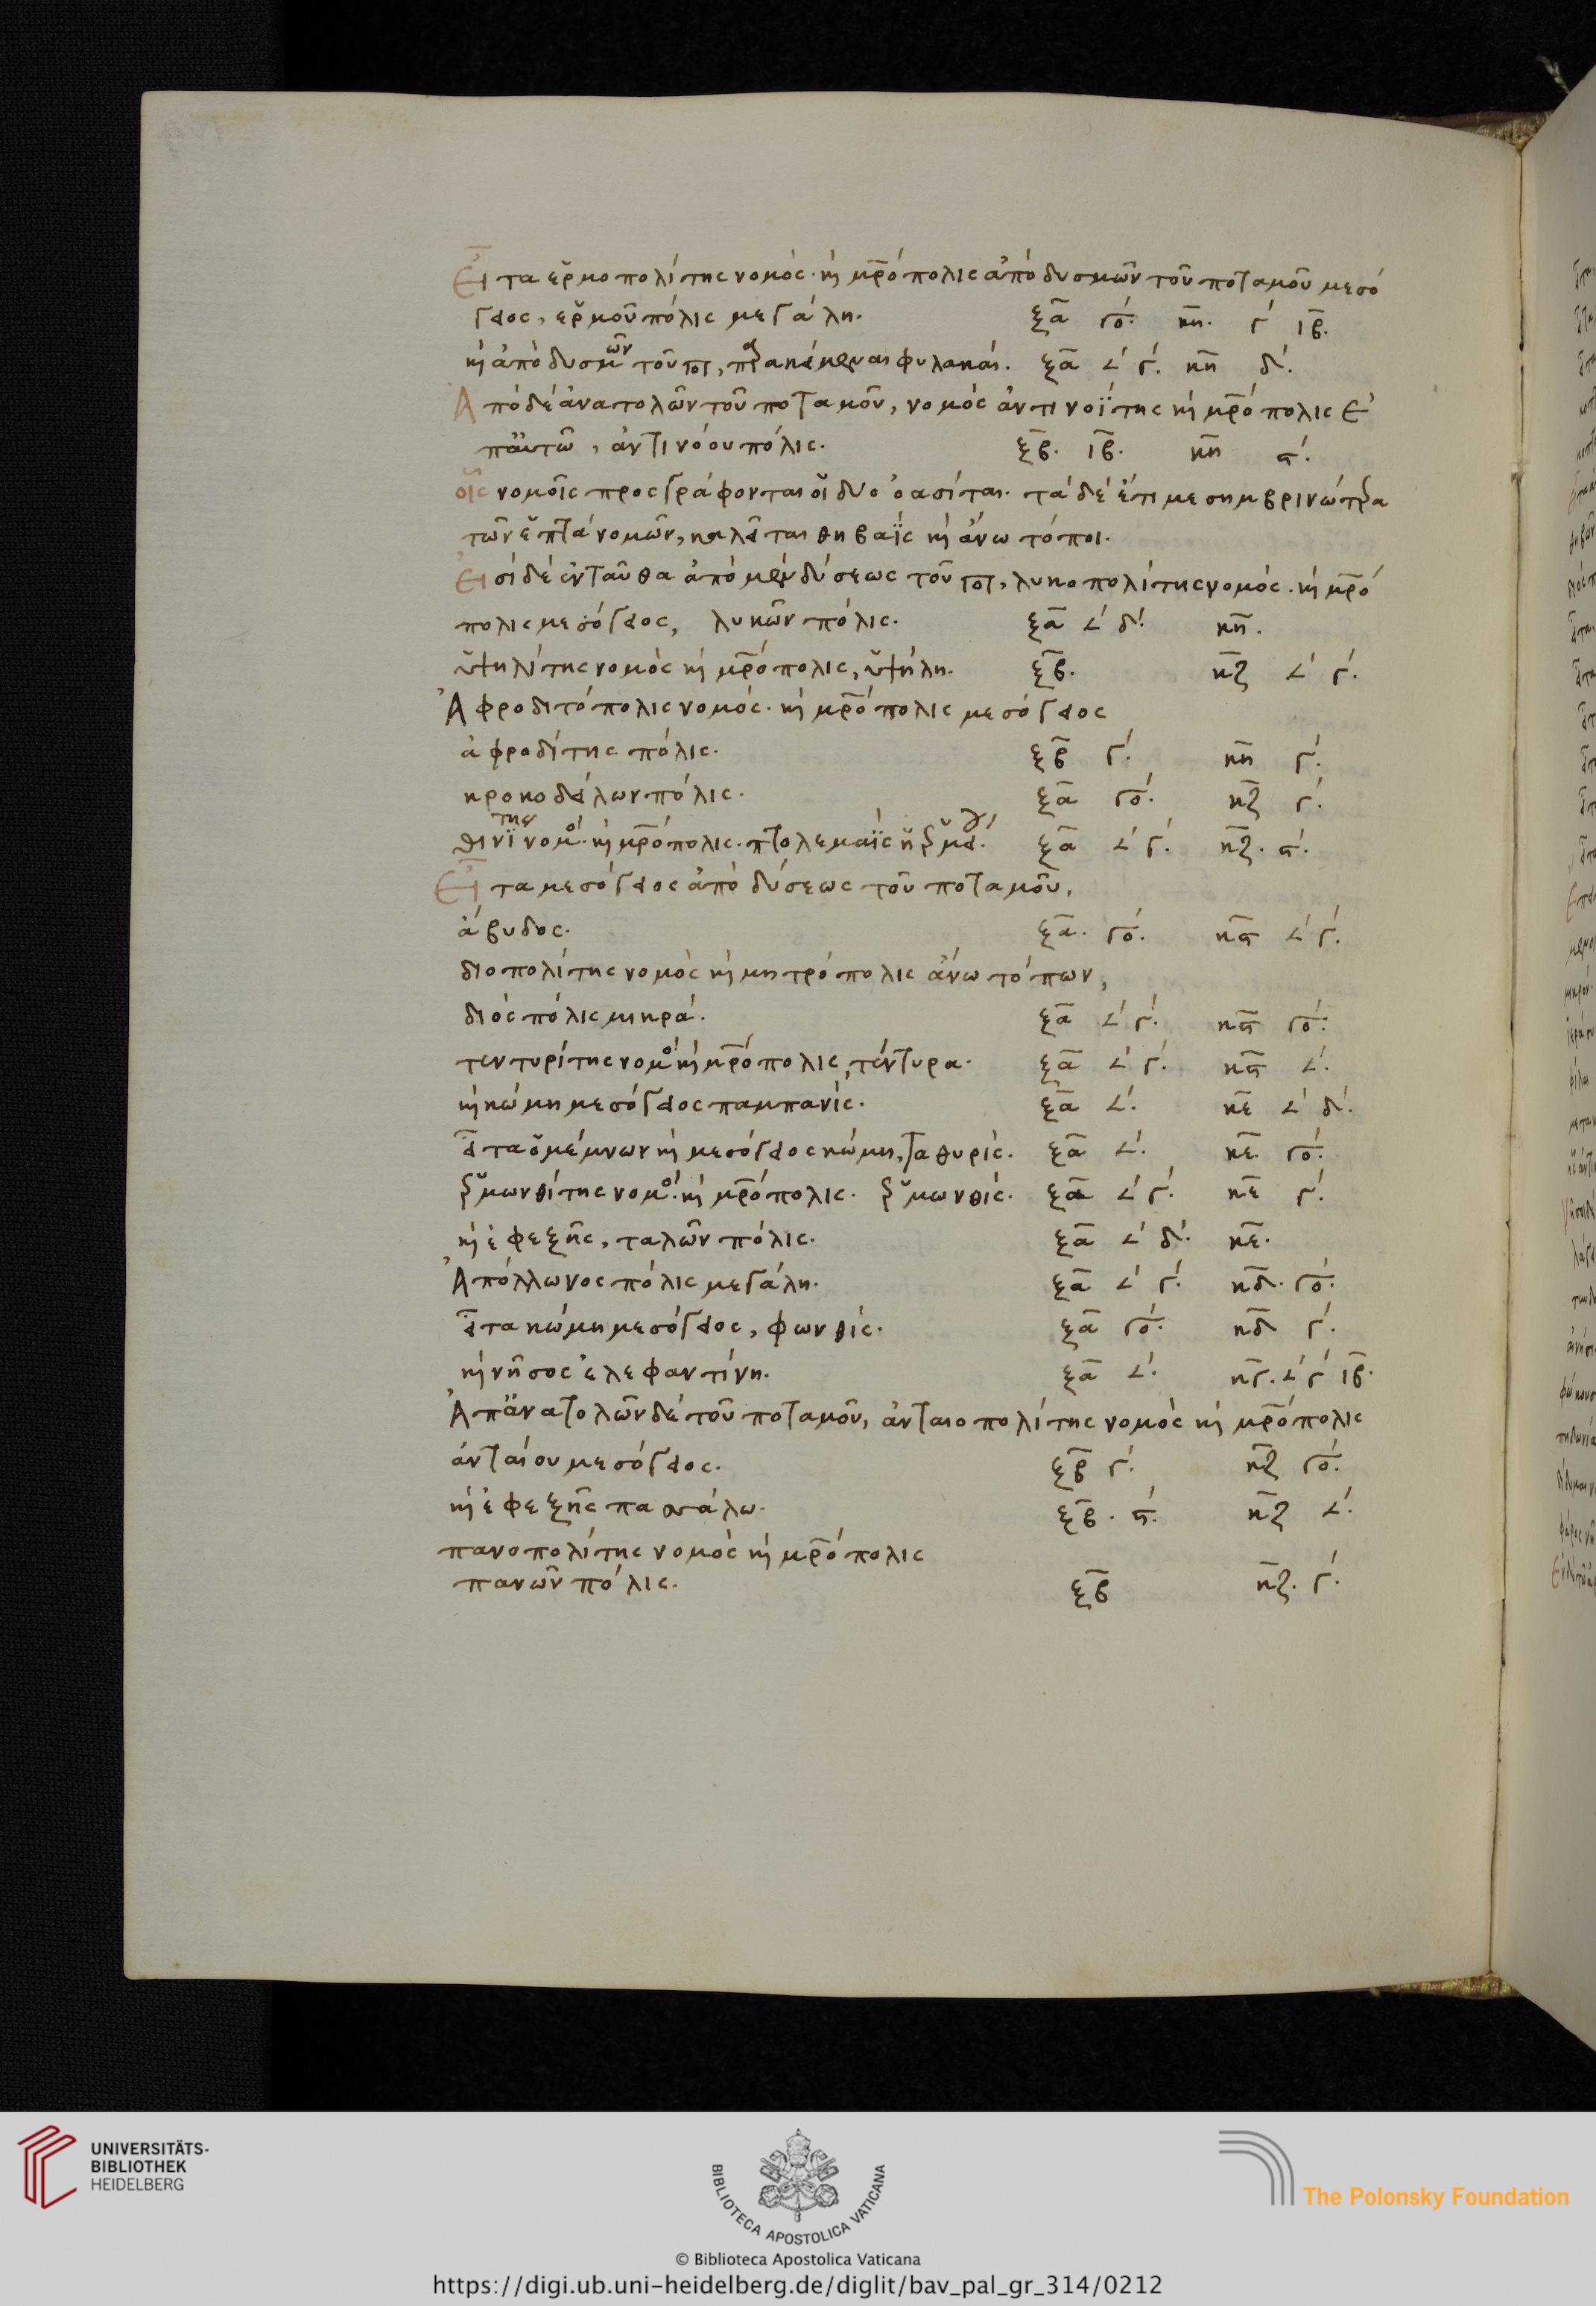 Εἶτα ἑρμοπολίτης νομὸς· καὶ μ̅ρ̅όπολις ἀπὸ δυσμῶν τοῦ ποταμοῦ μεσό
γειος, ἑρμοῦ πόλις μεγάλη. ξ̅α̅ γο΄. κ̅η̅. γ΄ ι̅β̅.
καὶ ἀπὸ δυσμῶν τοῦ ποτ, φυλακαί. ξ̅α̅ 𐅵΄ γ΄. κ̅η̅ δ΄.
Ἀπὸ δὲ ἀνατολῶν τοῦ ποταμοῦ, νομὸς ἀντινοΐτης καὶ μ̅ρ̅όπολις ἐ
παὐτῶ, ἀντινόου πόλις. ξ̅β̅. ι̅β̅. κ̅η̅ ϛ΄.
οἷς νομοῖς προσγράφονται οἱ δύο ὀασίται. τὰ δὲ ἔτι μεσημβρινώτερα
τῶν ἑπτὰ νομῶν, καλεῖται θηβαῒς καὶ ἄνω τόποι.
Εἰσὶ δὲ ἐνταῦθα ἀπὸ μὲν δύσεως τοῦ ποτ, λυκοπολίτης νομός. καὶ μ̅ρ̅ό
πολις μεσόγειος, λυκῶν πόλις. ξ̅α̅ 𐅵΄ δ΄. κ̅η̅.
ὑψηλίτης νομὸς καὶ μ̅ρ̅όπολις, ὑψήλη. ξ̅β̅. κ̅ζ̅ 𐅵΄ γ΄.
Ἀφροδιτόπολις νομός. καὶ μ̅ρ̅όπολις μεσόγειος
ἀφροδίτης πόλις. ξ̅β̅ γ΄. κ̅η̅ γ΄.
κροκοδείλων πόλις. ξ̅α̅ γο΄. κ̅ζ̅ γ΄.
θινΐτης νομο΄. καὶ μ̅ρ̅όπολις. πτολεμαῒς ἡ ἑρμεί. ξ̅α̅ 𐅵΄ γ΄. κ̅ζ̅. ϛ΄.
Εἶτα μεσόγειος ἀπὸ δύσεως τοῦ ποταμοῦ,
ἄβυδος. ξ̅α̅. γο΄. κ̅ϛ̅ 𐅵΄ γ΄.
διοπολίτης νομὸς καὶ μητρόπολις ἄνω τόπων,
διὸς πόλις μικρά. ξ̅α̅ 𐅵΄ γ΄. κ̅ϛ̅ γο΄.
τεντυρίτης νομο΄ καὶ μ̅ρ̅όπολις, τέντυρα. ξ̅α̅ 𐅵΄ γ΄. κ̅ϛ̅ 𐅵΄.
καὶ κώμη μεσόγειος παμπανίς. ξ̅α̅ 𐅵΄. κ̅ε̅ 𐅵΄ δ΄.
εἶτα ὁ μέμνων καὶ μεσόγειος κώμη, ταθυρίς. ξ̅α̅ 𐅵΄. κ̅ε̅. γο΄.
ἑρμωνθίτης νομο΄. καὶ μ̅ρ̅όπολις. ἑρμωνθίς. ξ̅α̅ 𐅵΄ γ΄. κ̅ε̅ γ΄.
καὶ ἐφεξῆς, ταλῶν πόλις. ξ̅α̅ 𐅵΄ δ΄. κ̅ε̅.
Ἀπόλλωνος πόλις μεγάλη. ξ̅α̅ 𐅵΄ γ΄. κ̅δ̅. γο΄.
εἶτα κώμη μεσόγειος, φωνθίς. ξ̅α̅ γο΄. κ̅δ̅ γ΄.
καὶ νῆσος ἐλεφαντίνη. ξ̅α̅ 𐅵΄. κ̅γ̅. 𐅵΄ γ΄ ι̅β̅.
Ἀπἀνατολῶν δὲ τοῦ ποταμοῦ, ἀνταιοπολίτης νομὸς καὶ μ̅ρ̅όπολις
ἀνταίου μεσόγειος. ξ̅β̅ γ΄. κ̅ζ̅ γο΄.
καὶ ἐφεξῆς πασσάλω. ξ̅β̅. ϛ΄. κ̅ζ̅ 𐅵΄.
πανοπολίτης νομὸς καὶ μ̅ρ̅όπολις
πανῶν πόλις. ξ̅β̅ κ̅ζ̅. γ΄.
UNIVERSITÄTS-
BIBLIOTHEK
HEIDELBERG
BIBLIOTECA APOSTOLICA VATICANA
The Polonsky Foundation
© Biblioteca Apostolica Vaticana
https://digi.ub.uni-heidelberg.de/diglit/bav_pal_gr_314/0212